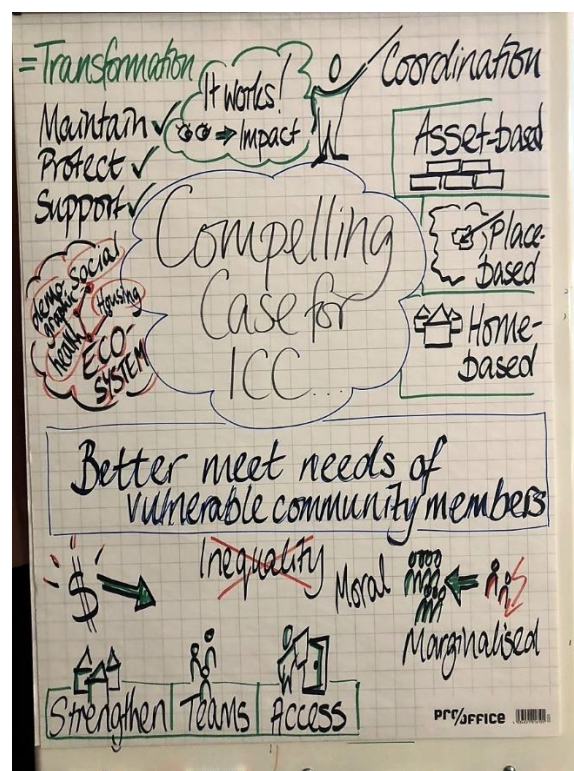 =Transformation
Maintain ✓
Protect ✓
Support ✓
It works!
⇒ Impact
Coordination
Asset-based
Place-
based
Home-
based
Social
Demo-
graphic
Housing
health
ECO-
SYSTEM
Compelling
Case for
ICC...
Better meet needs of
vulnerable community members
$
Inequality
Moral
Marginalised
Strengthen
Teams
Access